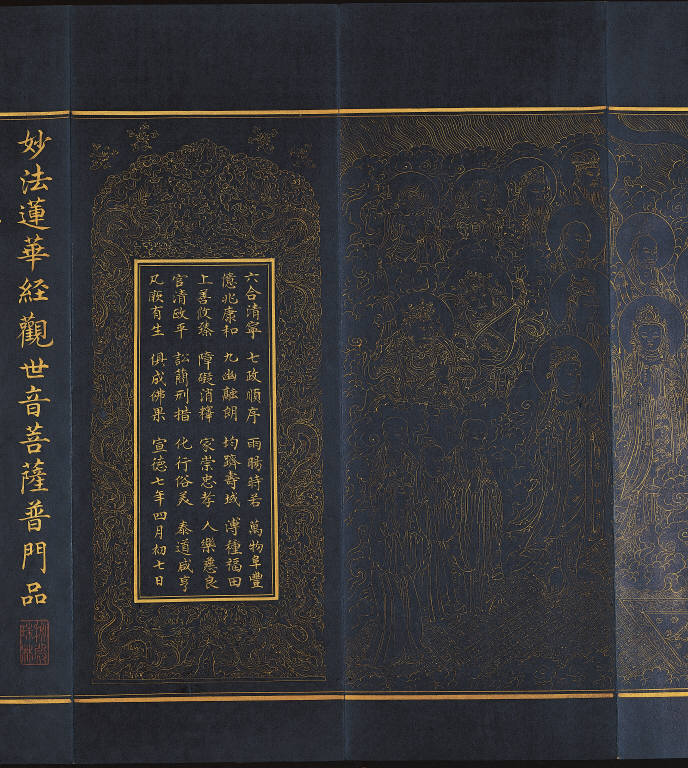 六合清寧 七政順序 雨暘時若 萬物阜豐
億兆康和 九幽融朗 均躋壽域 溥種福田
上善攸臻 障礙消釋 家崇忠孝 人樂慈良
官清政平 訟簡刑措 化行俗美 泰道咸亨
凡厥有生 俱成佛果 宣德七年四月初七日
妙法蓮華經觀世音菩薩普門品